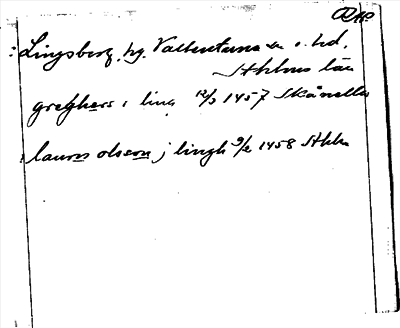 Lingsberg, hg. Vallentuna sn o. hd,
Sthlms län
greghers i ling 12/3 1457 Skånella
laurns olsson j lingh 9/2 1458 Sthlm